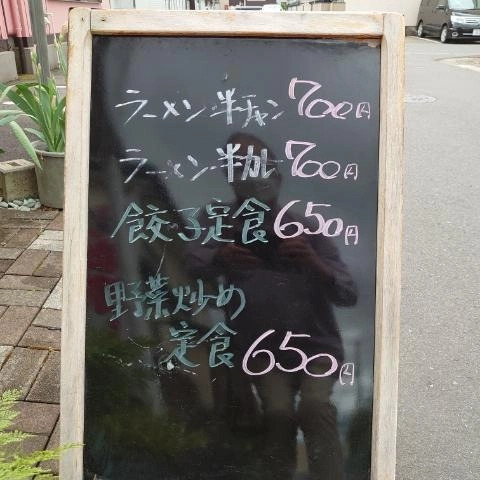 ラーメン半チャン700円
ラーメン半カレー700円
餃子定食650円
野菜炒め
定食650円